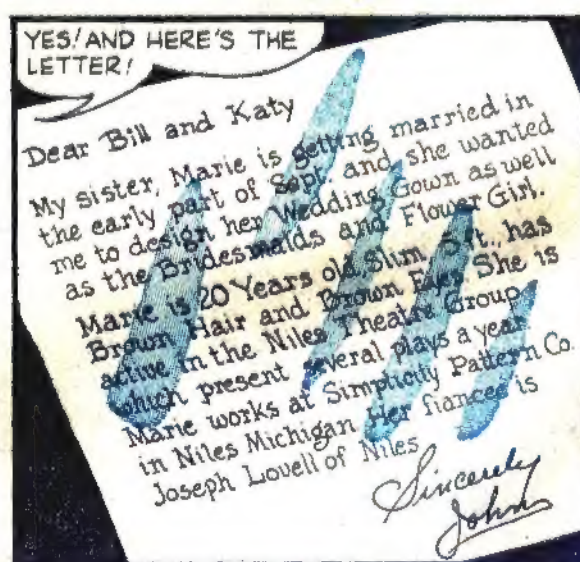 YES! AND HERE'S THE
LETTER!
Dear Bill and Katy
My sister, Marie is getting married in
the early part of Sept. and she wanted
me to design her Wedding Gown as well
as the Bridesmaids and Flower Girl.
Marie is 20 Years old, Slim, 5 ft., has
Brown Hair and Brown Eyes. She is
active in the Niles Theatre Group
which present several plays a year
Marie works at Simplicity Pattern Co.
in Niles Michigan Her fiancee is
Joseph Lovell of Niles
Sincerely
John